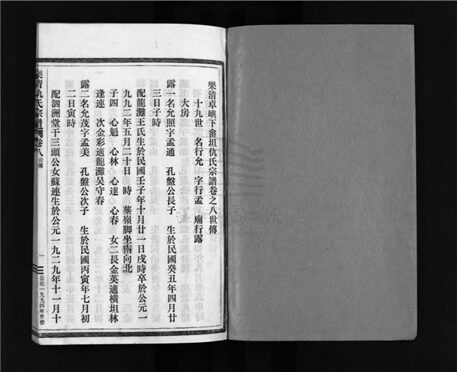 樂清卓嶼下畲垣仇氏宗譜卷之八世傳
十九世 名行允 字行孟 廟行露
大房
露一名允照字孟通 孔盤公長子 生於民國癸丑年四月廿
三日子時
配龍灘王氏生於民國壬子年十月廿一日戌時卒於公元一
九九二年五月二十日 時 墓嶺脚坐南向北
子四 心魁 心林 心達 心春 女二長金英適橫垣林
逢連 次金彩適龍灘吳守春
露二名允茂字孟美 孔盤公次子 生於民國丙寅年七月初
二日寅時
配泗洲堂干三頭公女蘇連生於公元一九二九年十一月十
樂清仇氏宗譜 卷八
一
公元一九九四年重修